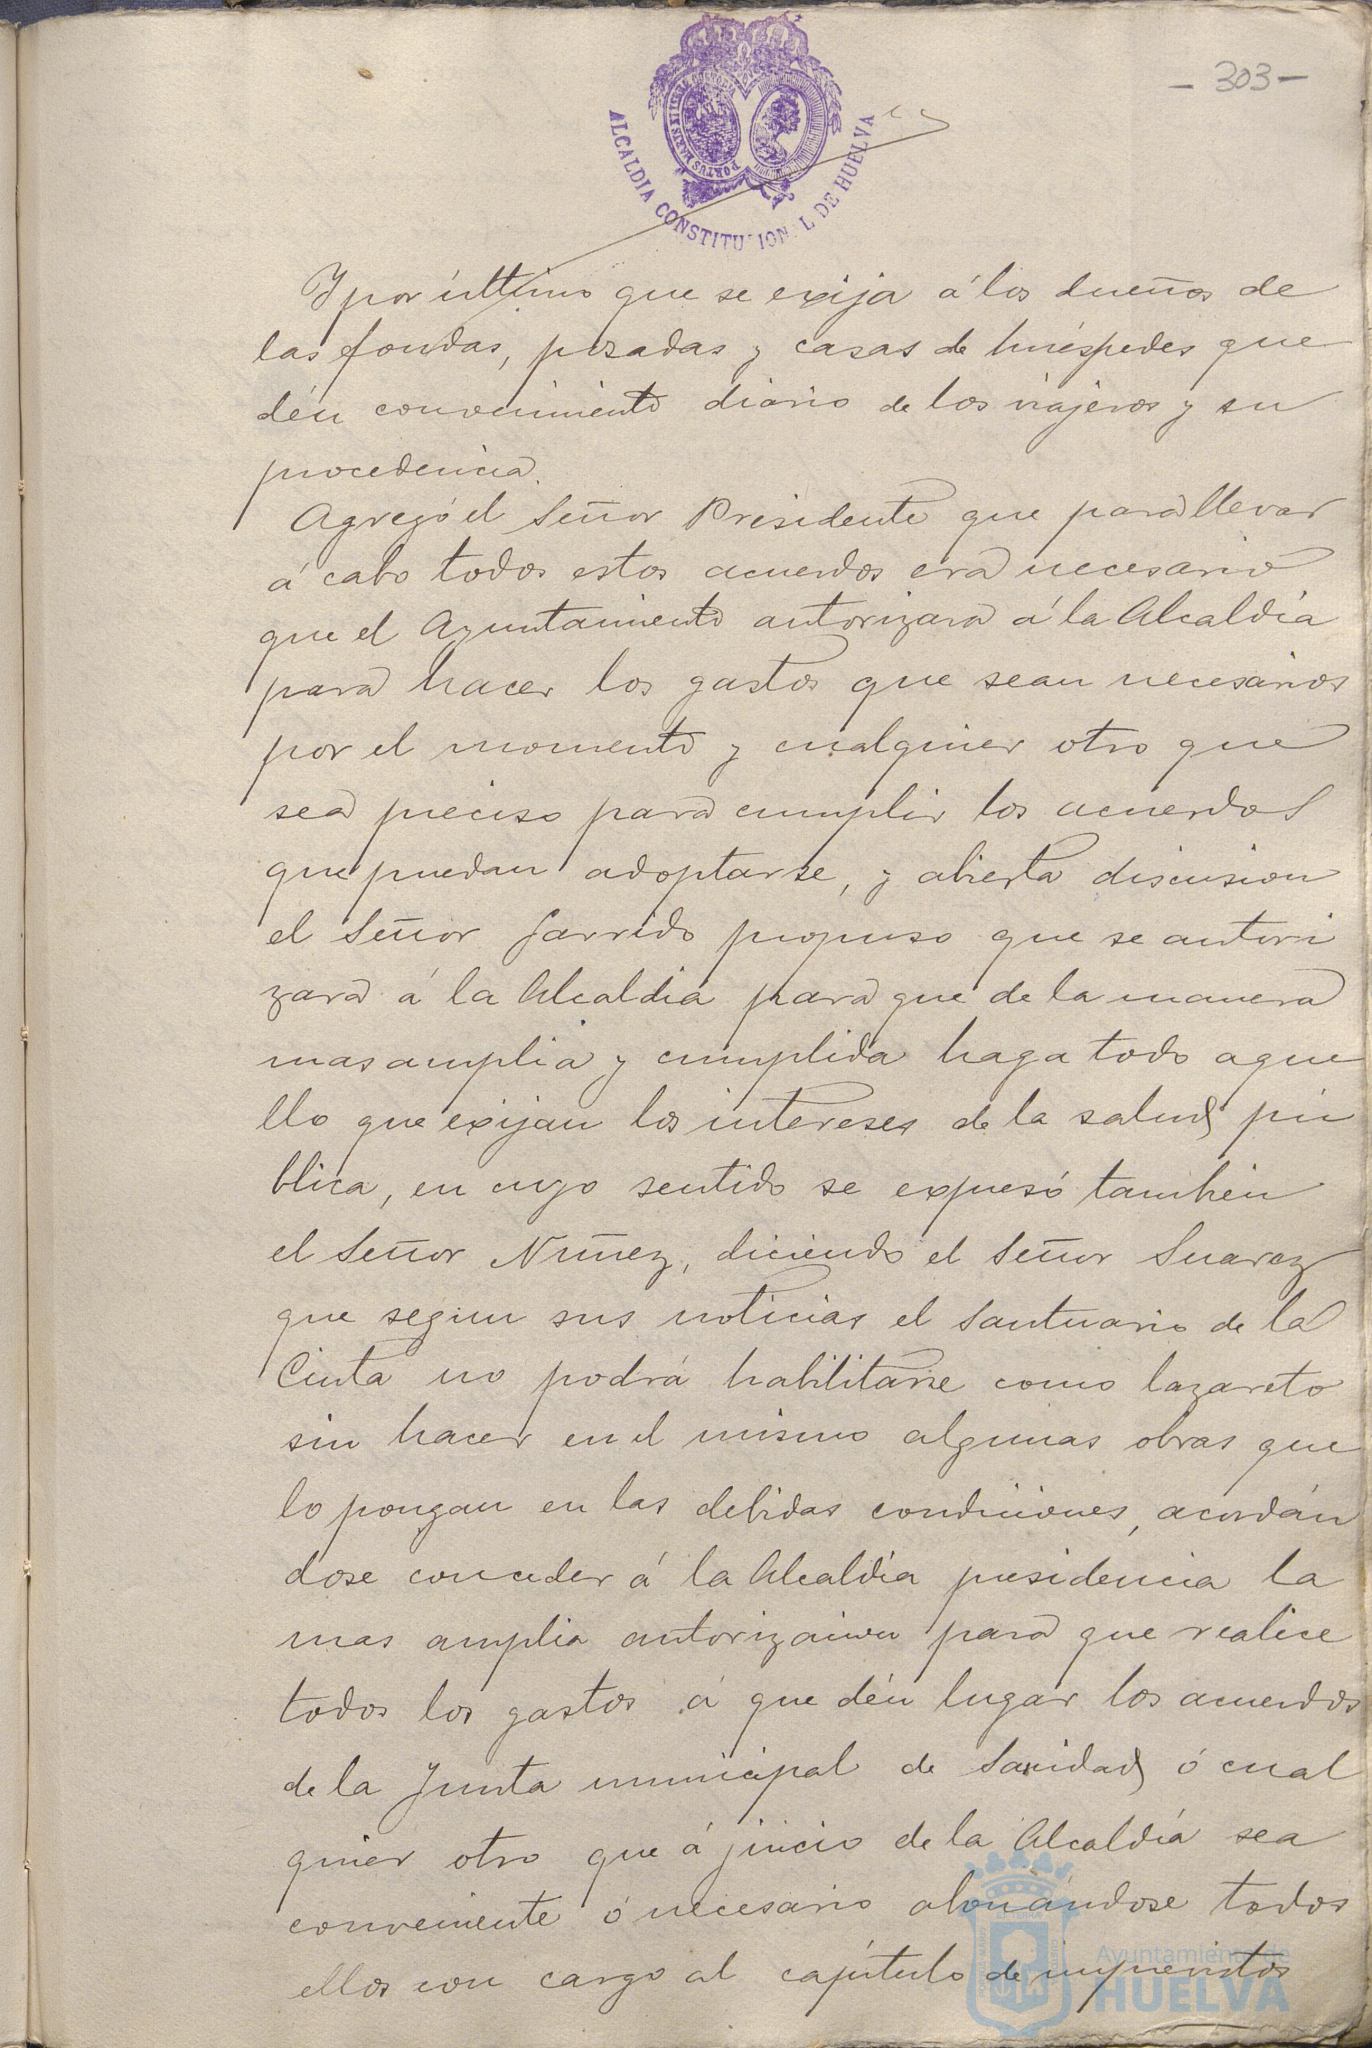 - 303 -
ALCALDIA CONSTITU ION L DE HUELVA
PORTUS MARIS ET TERRÆ CUSTODIA
Y por último que se exija á los dueños de
las fondas, posadas y casas de huéspedes que
dén conocimiento diario de los viajeros y su
procedencia.
Agregó el Señor Presidente que para llevar
á cabo todos estos acuerdos era necesario
que el Ayuntamiento autorizara á la Alcaldía
para hacer los gastos que sean necesarios
por el momento y cualquier otro que
sea preciso para cumplir los acuerdos
que puedan adoptarse, y abierta discusion
el Señor Garrido propuso que se autori
zara á la Alcaldia para que de la manera
mas amplia y cumplida haga todo aque
llo que exijan los intereses de la salud pú
blica, en cuyo sentido se expresó tambien
el Señor Nuñez, diciendo el Señor Suarez
que segun sus noticias el Santuario de la
Cinta no podrá habilitarse como lazareto
sin hacer en el mismo algunas obras que
lo pongan en las debidas condiciones, acordán
dose conceder á la Alcaldia presidencia la
mas amplia autorizacion para que realice
todos los gastos á que dén lugar los acuerdos
de la Junta municipal de Sanidad ó cual
quier otro que á juicio de la Alcaldía sea
conveniente ó necesario abonándose todos
ellos con cargo al capítulo de imprevistos
Ayuntamiento de
HUELVA